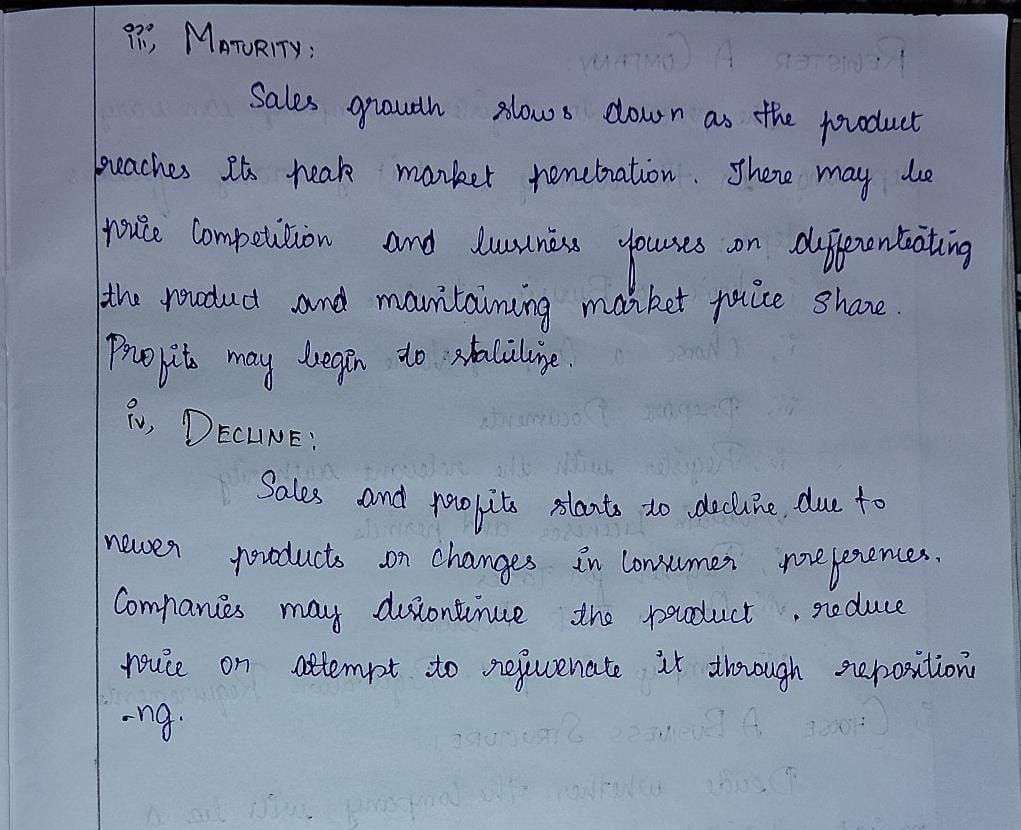 iii, MATURITY:
Sales growth slows down as the product
reaches its peak market penetration. There may be
price Competition and business focuses on differentiating
the product and maintaining market price share.
Profits may begin to stabilize.
iv, DECLINE:
Sales and profits starts to decline due to
newer products or changes in consumer preferences.
Companies may discontinue the product, reduce
price or attempt to rejuvenate it through repositioni
-ng.